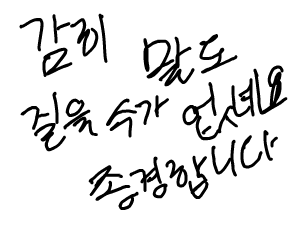 감히 말도
걸을 수가 없네요
종경합니다